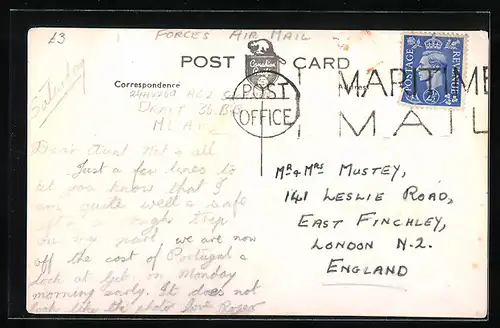 £3
FORCES AIR MAIL
POST CARD
Canadian Pacific
Saturday
Correspondence
Address
POST
OFFICE
MARITIME
MAIL
POSTAGE REVENUE
2½D
Dear Aunt Nat & all
Just a few lines to
let you know that I
am quite well & safe
after a rough trip
on my part we are now
off the cost of Portugal &
dock at Gib. on Monday
morning early. It does not
look like the photo love Roger
Mr & Mrs MUSTEY,
141 LESLIE ROAD,
EAST FINCHLEY,
LONDON N.2.
ENGLAND